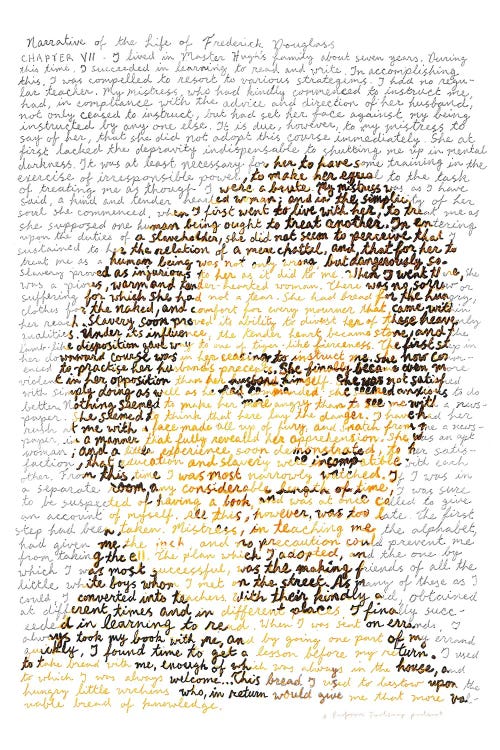 Narrative of the Life of Frederick Douglass
CHAPTER VII. I lived in Master Hugh's family about seven years. During
this time, I succeeded in learning to read and write. In accomplishing
this, I was compelled to resort to various stratagems. I had no regu-
lar teacher. My mistress, who had kindly commenced to instruct me,
had, in compliance with the advice and direction of her husband,
not only ceased to instruct, but had set her face against my being
instructed by any one else. It is due, however, to my mistress to
say of her, that she did not adopt this course immediately. She at
first lacked the depravity indispensable to shutting me up in mental
darkness. It was at least necessary for her to have some training in the
exercise of irresponsible power, to make her equal to the task
of treating me as though I were a brute. My mistress was, as I have
said, a kind and tender hearted woman; and in the simplicity of her
soul she commenced, when I first went to live with her, to treat me as
she supposed one human being ought to treat another. In entering
upon the duties of a slaveholder, she did not seem to perceive that I
sustained to her the relation of a mere chattel, and that for her to
treat me as a human being was not only wrong but dangerously so.
Slavery proved as injurious to her as it did to me. When I went there, she
was a pious, warm and tender-hearted woman. There was no sorrow or
suffering for which she had not a tear. She had bread for the hungry,
clothes for the naked, and comfort for every mourner that came within
her reach. Slavery soon proved its ability to divest her of these heavenly
qualities. Under its influence, the tender heart became stone, and the
lamb-like disposition gave way to one of tiger-like fierceness. The first step in
her downward course was in her ceasing to instruct me. She now com-
menced to practise her husband's precepts. She finally became even more
violent in her opposition than her husband himself. She was not satisfied
with simply doing as well as he had commanded; she seemed anxious to do
better. Nothing seemed to make her more angry than to see me with a news-
paper. She seemed to think that here lay the danger. I have had her
rush at me with a face made all up of fury, and snatch from me a news-
paper, in a manner that fully revealed her apprehension. She was an apt
woman; and a little experience soon demonstrated, to her satis-
faction, that education and slavery were incompatible with each
other. From this time I was most narrowly watched. If I was in
a separate room any considerable length of time, I was sure
to be suspected of having a book, and was at once called to give
an account of myself. All this, however, was too late. The first
step had been taken. Mistress, in teaching me the alphabet,
had given me the inch and no precaution could prevent me
from taking the ell. The plan which I adopted, and the one by
which I was most successful, was the making friends of all the
little white boys whom I met on the street. As many of these as I
could, I converted into teachers. With their kindly aid, obtained
at different times and in different places, I finally succ-
eeded in learning to read. When I was sent on errands, I
always took my book with me, and by going one part of my errand
quickly, I found time to get a lesson before my return. I used
to take bread with me, enough of which was always in the house, and
to which I was always welcome... This bread I used to bestow upon the
hungry little urchins who, in return would give me that more val-
uable bread of knowledge.